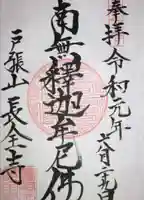 奉拝 令和元年 六月二十九日
南無釋迦牟尼佛
戸張山 長全寺